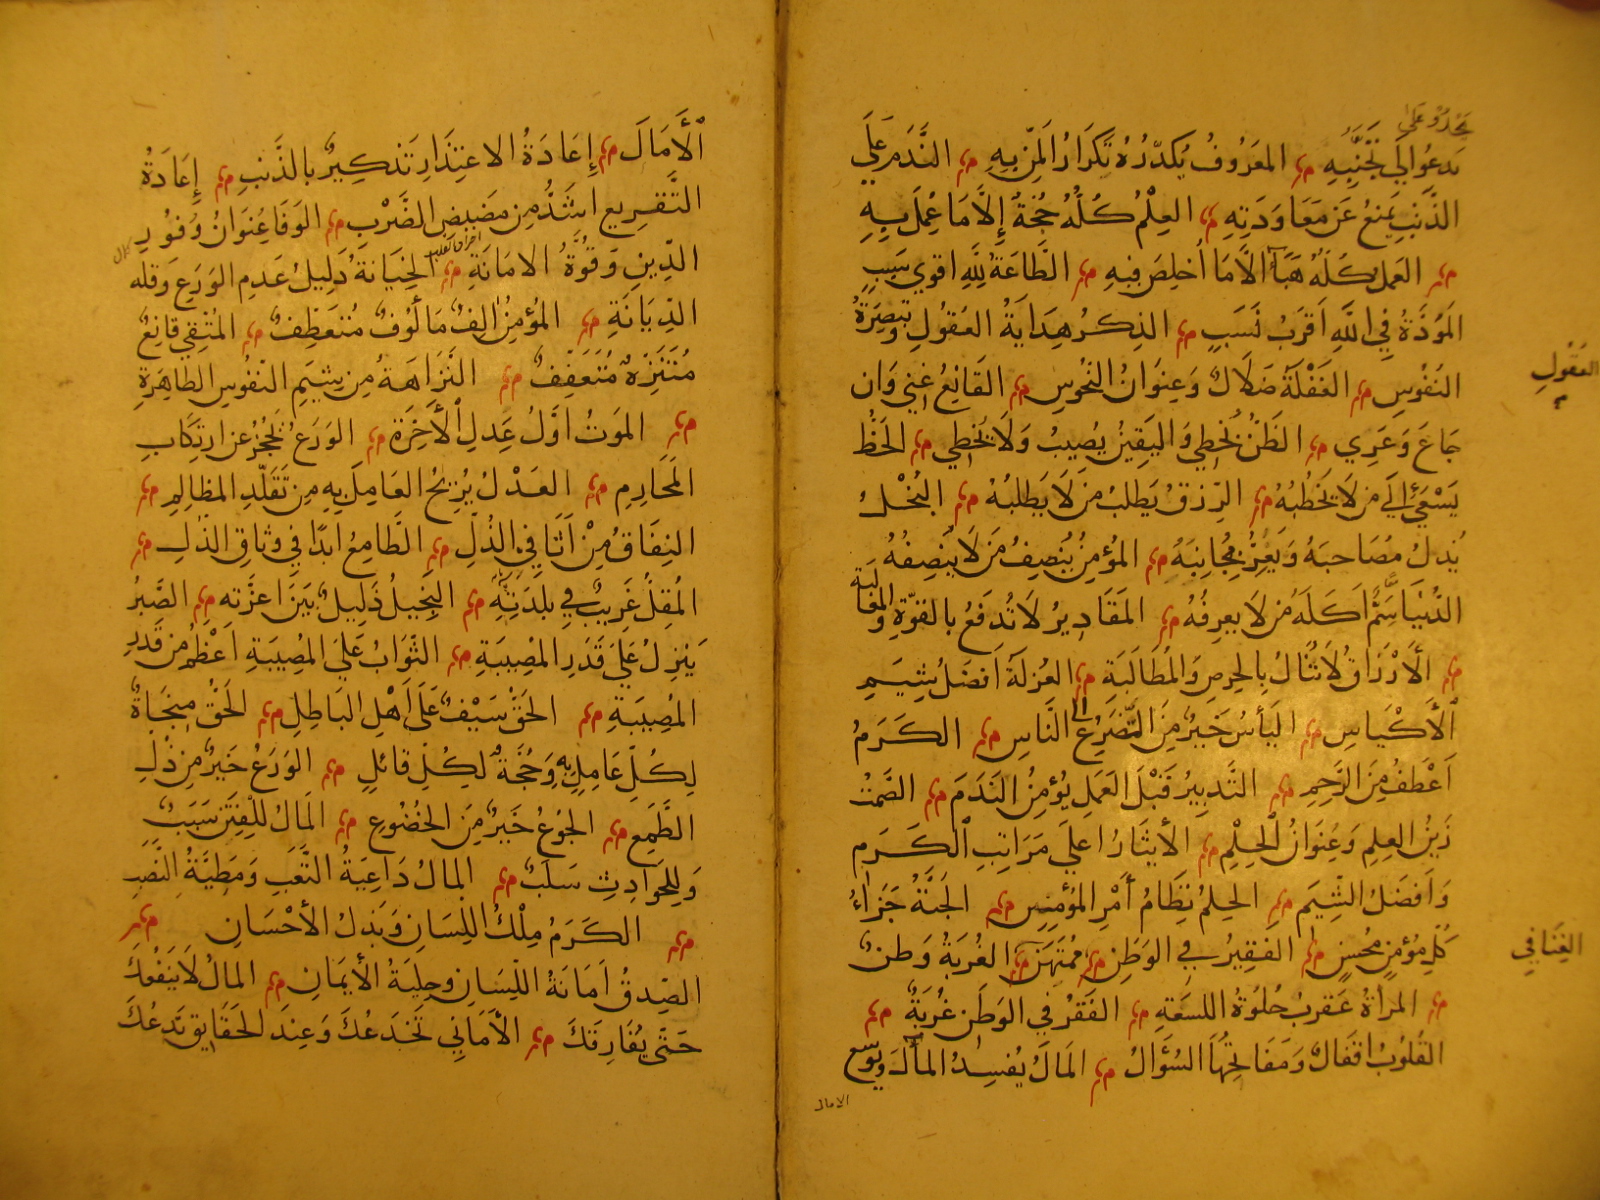 يَدعُوا إلَي تَجَنُّبِهِ المعَرُوفُ يُكدّرُهُ تَكرَارُ المَنِّ بِهِ النَّدَمُ عَلَي
الذَّنبِ يَمنعُ عَن مَعَاوَدَتِهِ العِلْمُ كُلُّهُ حُجَّةٌ إِلاَّ مَا عُمِلَ بِهِ
العَمَلُ كُلّهُ هَبَآءٌ الاَّ مَا اُخلِصَ فِيهِ الطَّاعَةُ لِلَّهِ اقوي سَبَبٍ
المَوَدَّةُ فِي اللَّهِ اَقرَبُ نَسَبٍ الذِكرُ هِدَايَةُ العُقُولِ وتبصِرَةُ
العُقُولِ
النفُوسِ الغَفْلَةُ ضَلاَلٌ وَعِنوَانُ النُحوسِ القَانِعُ غنِي وَان
جَاعَ وَعَرِي الظَنُّ يُخطِي وَاليَقِينُ يُصِيبُ وَلَا يُخطِي الحَظُّ
يَسْعَيٰ اِلَي مَن لَا يَخطُبُهُ الرِّزقُ يَطلبُ مَن لَا يَطلبُهُ البُخْلُ
يُذِلُ مُصَاحبَهُ وَيُعِزُّ مُجَانِبَهُ المُؤمِنُ يُنصِفُ مَن لَا يُنصِفُهُ
الدُّنيَا سَمٌّ اَكَلَهُ مَن لَا يعرِفُهُ المَقَادِيرُ لَا تُدفَعُ بالقوّةِ والمغالبَة
اَلاَرزَاقُ لَا تُنَالُ بِالحِرصِ وَالمُطَالَبَةِ العُزلَةُ اَفضَلُ شِيَمِ
الأَكْيَاسِ اليَأسُ خَيرٌ مِنَ التَّضرُعِ الي النَّاسِ الكَرَمُ
اَعْطَفُ مِنَ الرَحِمِ التَدبِيرُ قَبْلَ العَمَلِ يُؤمِنُ النَدَمَ الصَّمتُ
زَينُ العِلمِ وَعِنوَانُ الحِلْمِ الأيثَارُ اعلَي مَرَاتِبِ الكَرَمِ
وَاَفضَلُ الشِّيَمِ الحِلمُ نِظَامُ أَمْرِ المُؤمِنِ الجَنّةُ جَزَاءُ
كُلِّ مُؤمِنٍ مُحسِنٍ الفَقِيرُ فِي الوَطَنِ مُمتَهَنٌ الغُربَةُ وَطَنٌ
الغِنَا فِي
المرأةُ عَقرَبٌ حُلوَةُ اللسعَةِ الفَقرُ في الوَطَنِ غُربَةٌ
القُلوبُ اقفَالٌ وَمَفَاتِحُهَا السُؤَالُ المَالُ يُفسِدُ المآلَ ويوّسع
الامال
الأَمَالَ إِعَادَةُ الاعتِذَارِ تَذكِيرٌ بالذَّنبِ إِعَادَةُ
التَّقرِيعِ اشَدُّ مِن مَضِيضِ الضَّرْبِ الوَفَا عُنوَانُ وُفُورِ
الدِّينِ وَقُوَّةُ الامَانَةِ الخِيَانةُ دَلِيلُ عَدمِ الوَرَعِ وَقله
الدّيَانَةِ المُؤمِنُ الِفٌ مَالُوفٌ مُتَعَطِّفٌ المُتَّقِي قانِعٌ
مُتَنَزِّهٌ مُتَعَفِّفٌ النَزَاهَةُ مِن شِيَمِ النُفُوسِ الطاهِرَةِ
المَوتُ اَوّلُ عَدلِ الأَخِرَةِ الوَرَعُ يَحْجُزُ عَن ارتِكَابِ
المَحَارِمِ العَدْلُ يُرِيْحُ العَامِلَ بِهِ مِن تَقَلُّدِ المظَالِمِ
النِفَاقُ مِنْ اَثَا فِي الذُلِّ الطَّامِعُ ابَدًا فِي وثَاقِ الذُلِ
المُقِلُّ غَرِيبٌ فِي بلدَتِهِ البَخِيلُ ذَلِيلٌ بَينَ اعزَّتِهِ الصَّبرُ
يَنزِلُ عَلَي قَدَرِ المُصِيبَةِ الثَّوَابُ عَلَي المُصِيبَةِ اَعْظَمُ مِن قَدرِ
المُصِيبَةِ الحَقُّ سَيْفٌ عَلَي اَهْلِ البَاطِلِ الحَقُّ مِنجَاةٌ
لِكُلِّ عَامِلٍ بِهِ وَحُجَّةٌ لِكُلِّ قائِلٍ الوَرَعُ خَيرٌ مِن ذُلِّ
الطَّمعِ الجُوعُ خَيرٌ مِنَ الخُضُوعِ المَالُ لِلفِتَنِ سَبَبٌ
وَلِلحَوَادِثِ سَلَبٌ المالُ دَاعِيَةُ التَّعَبِ وَمَطِيَّةُ النَّصَبِ
الكَرَمُ مِلْكُ اللِسَانِ وَبَذلُ الأحْسَانِ
الصِّدقُ اَمَانَةُ اللّسَانِ وَحِليَةُ الأيمَانِ المالُ لَا يَنفَعُكَ
حَتّي يُفَارِقَكَ الأَمَانِي تَخدَعُكَ وَعِندَ الحَقَايِق تَدَعُكَ